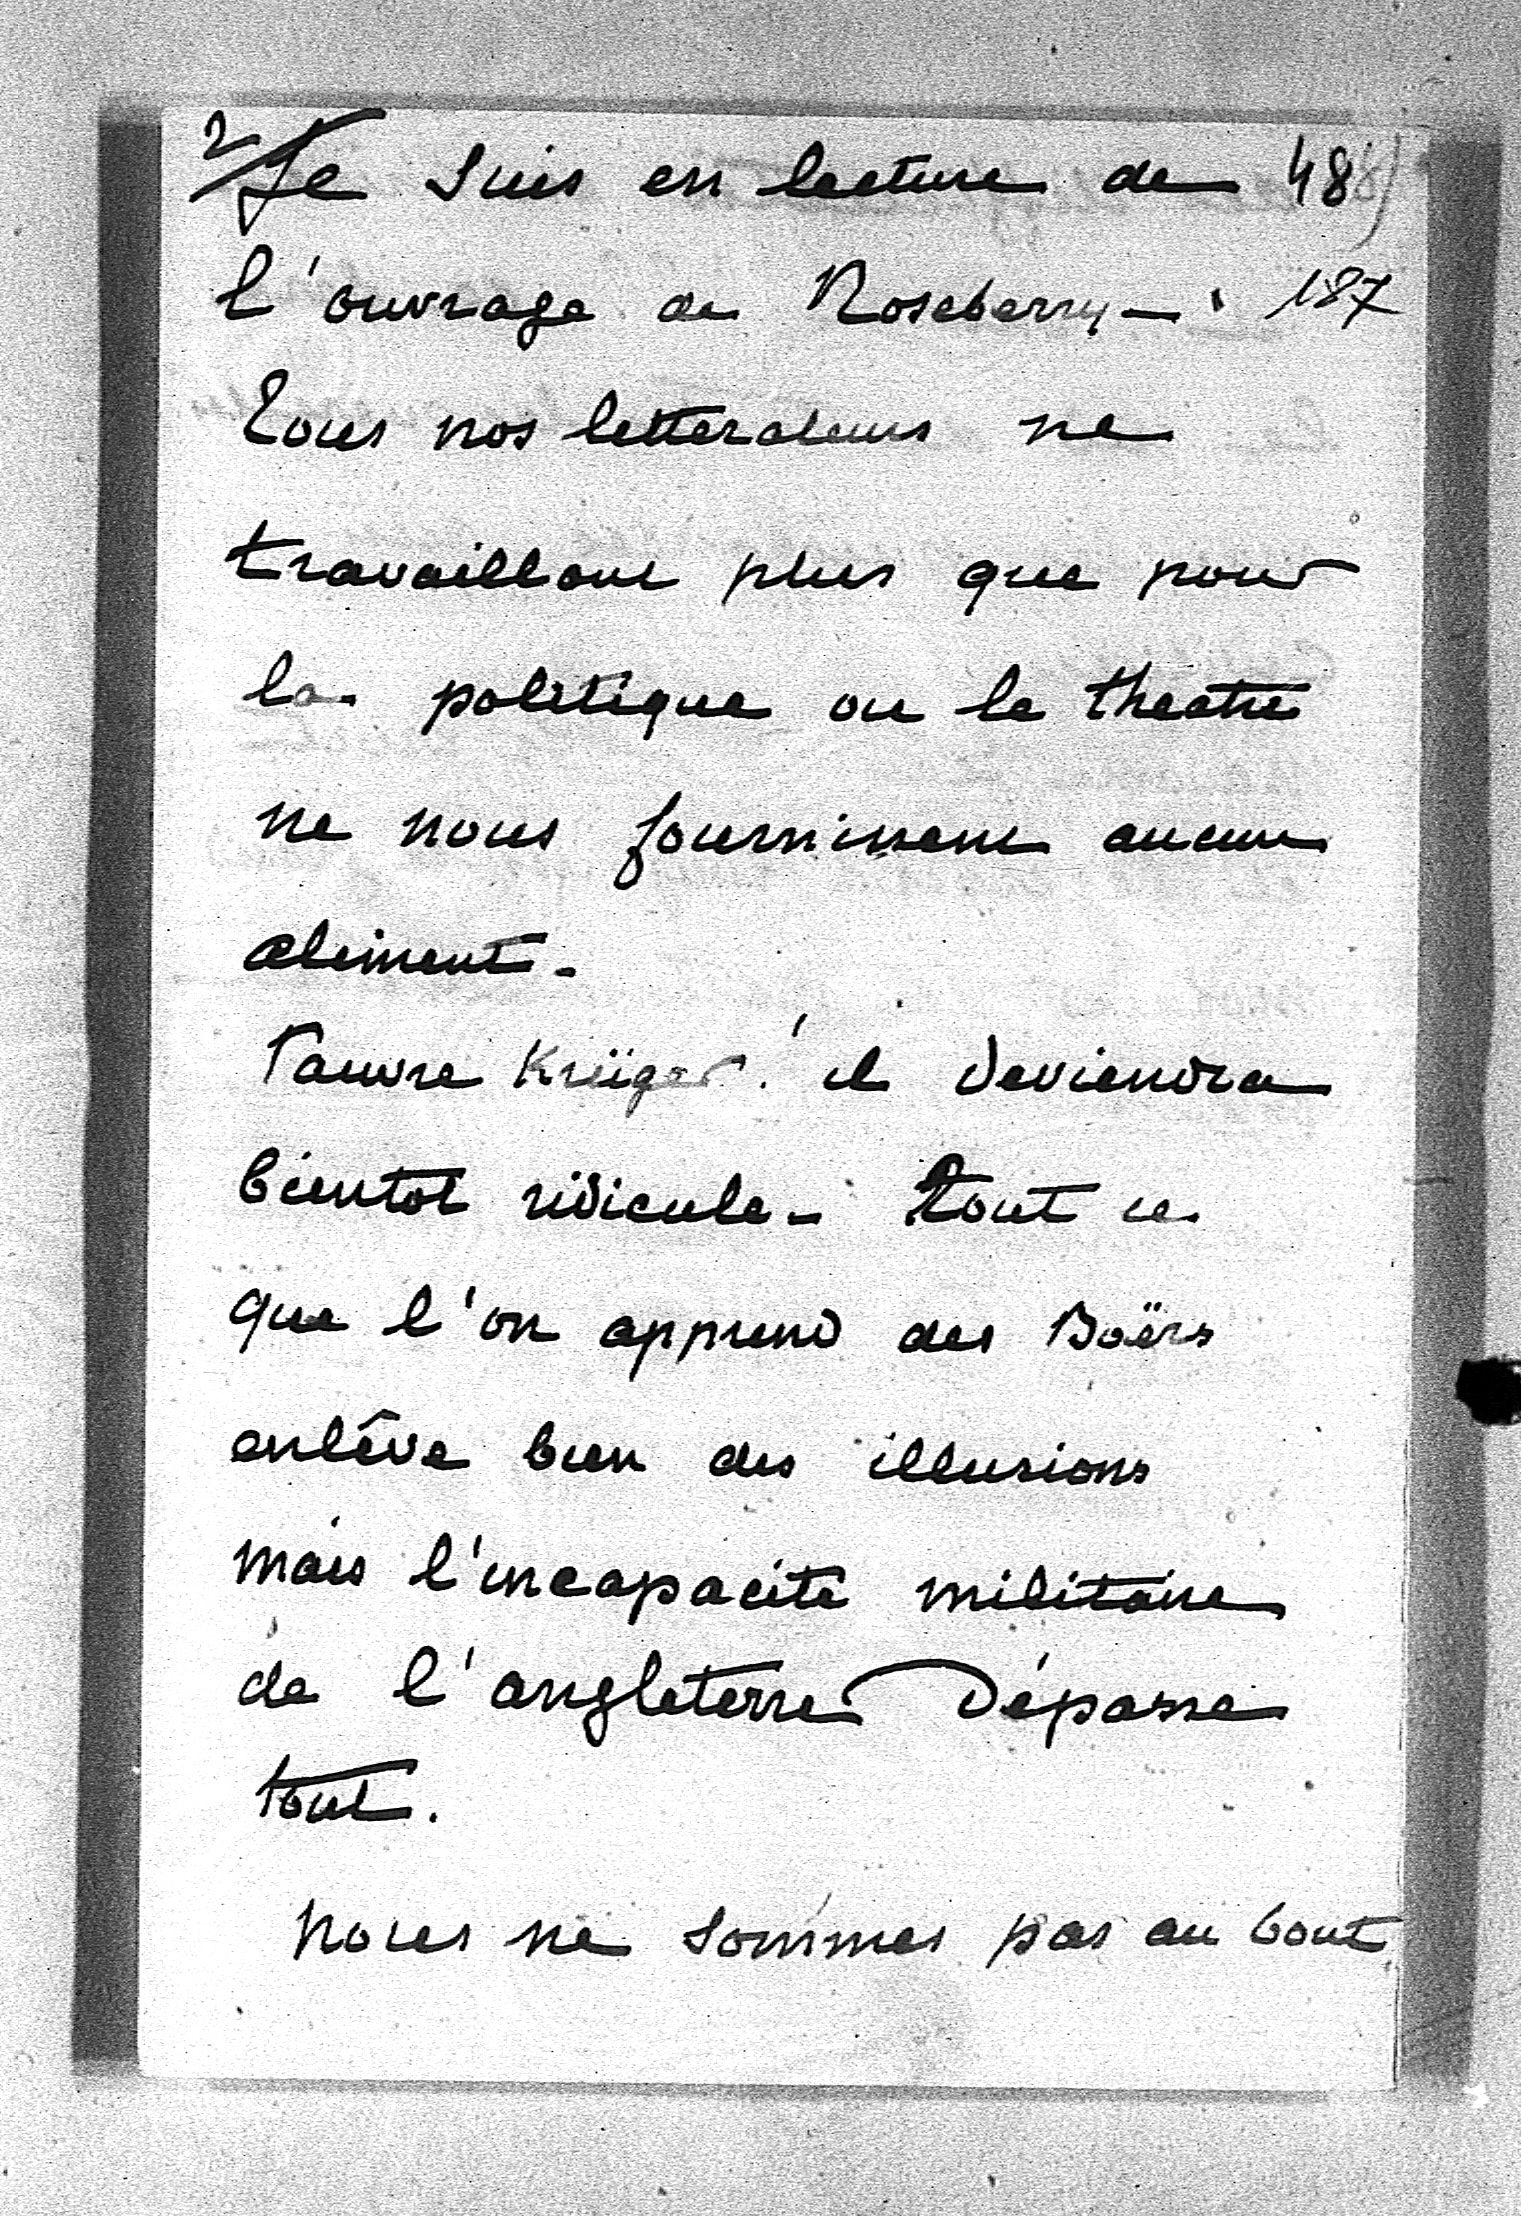 2/ Je suis en lecture de 48
l'ouvrage de Roseberry — 187
Tous nos litterateurs ne
travaillant plus que pour
la politique ou le theatre
ne nous fournissent aucun
aliment.
Pauvre Krüger! il deviendra
bientot ridicule. Tout ce
que l'on apprend des Boërs
enlève bien des illusions
mais l'incapacité militaire
de l'angleterre dépasse
tout.
Nous ne sommes pas au bout